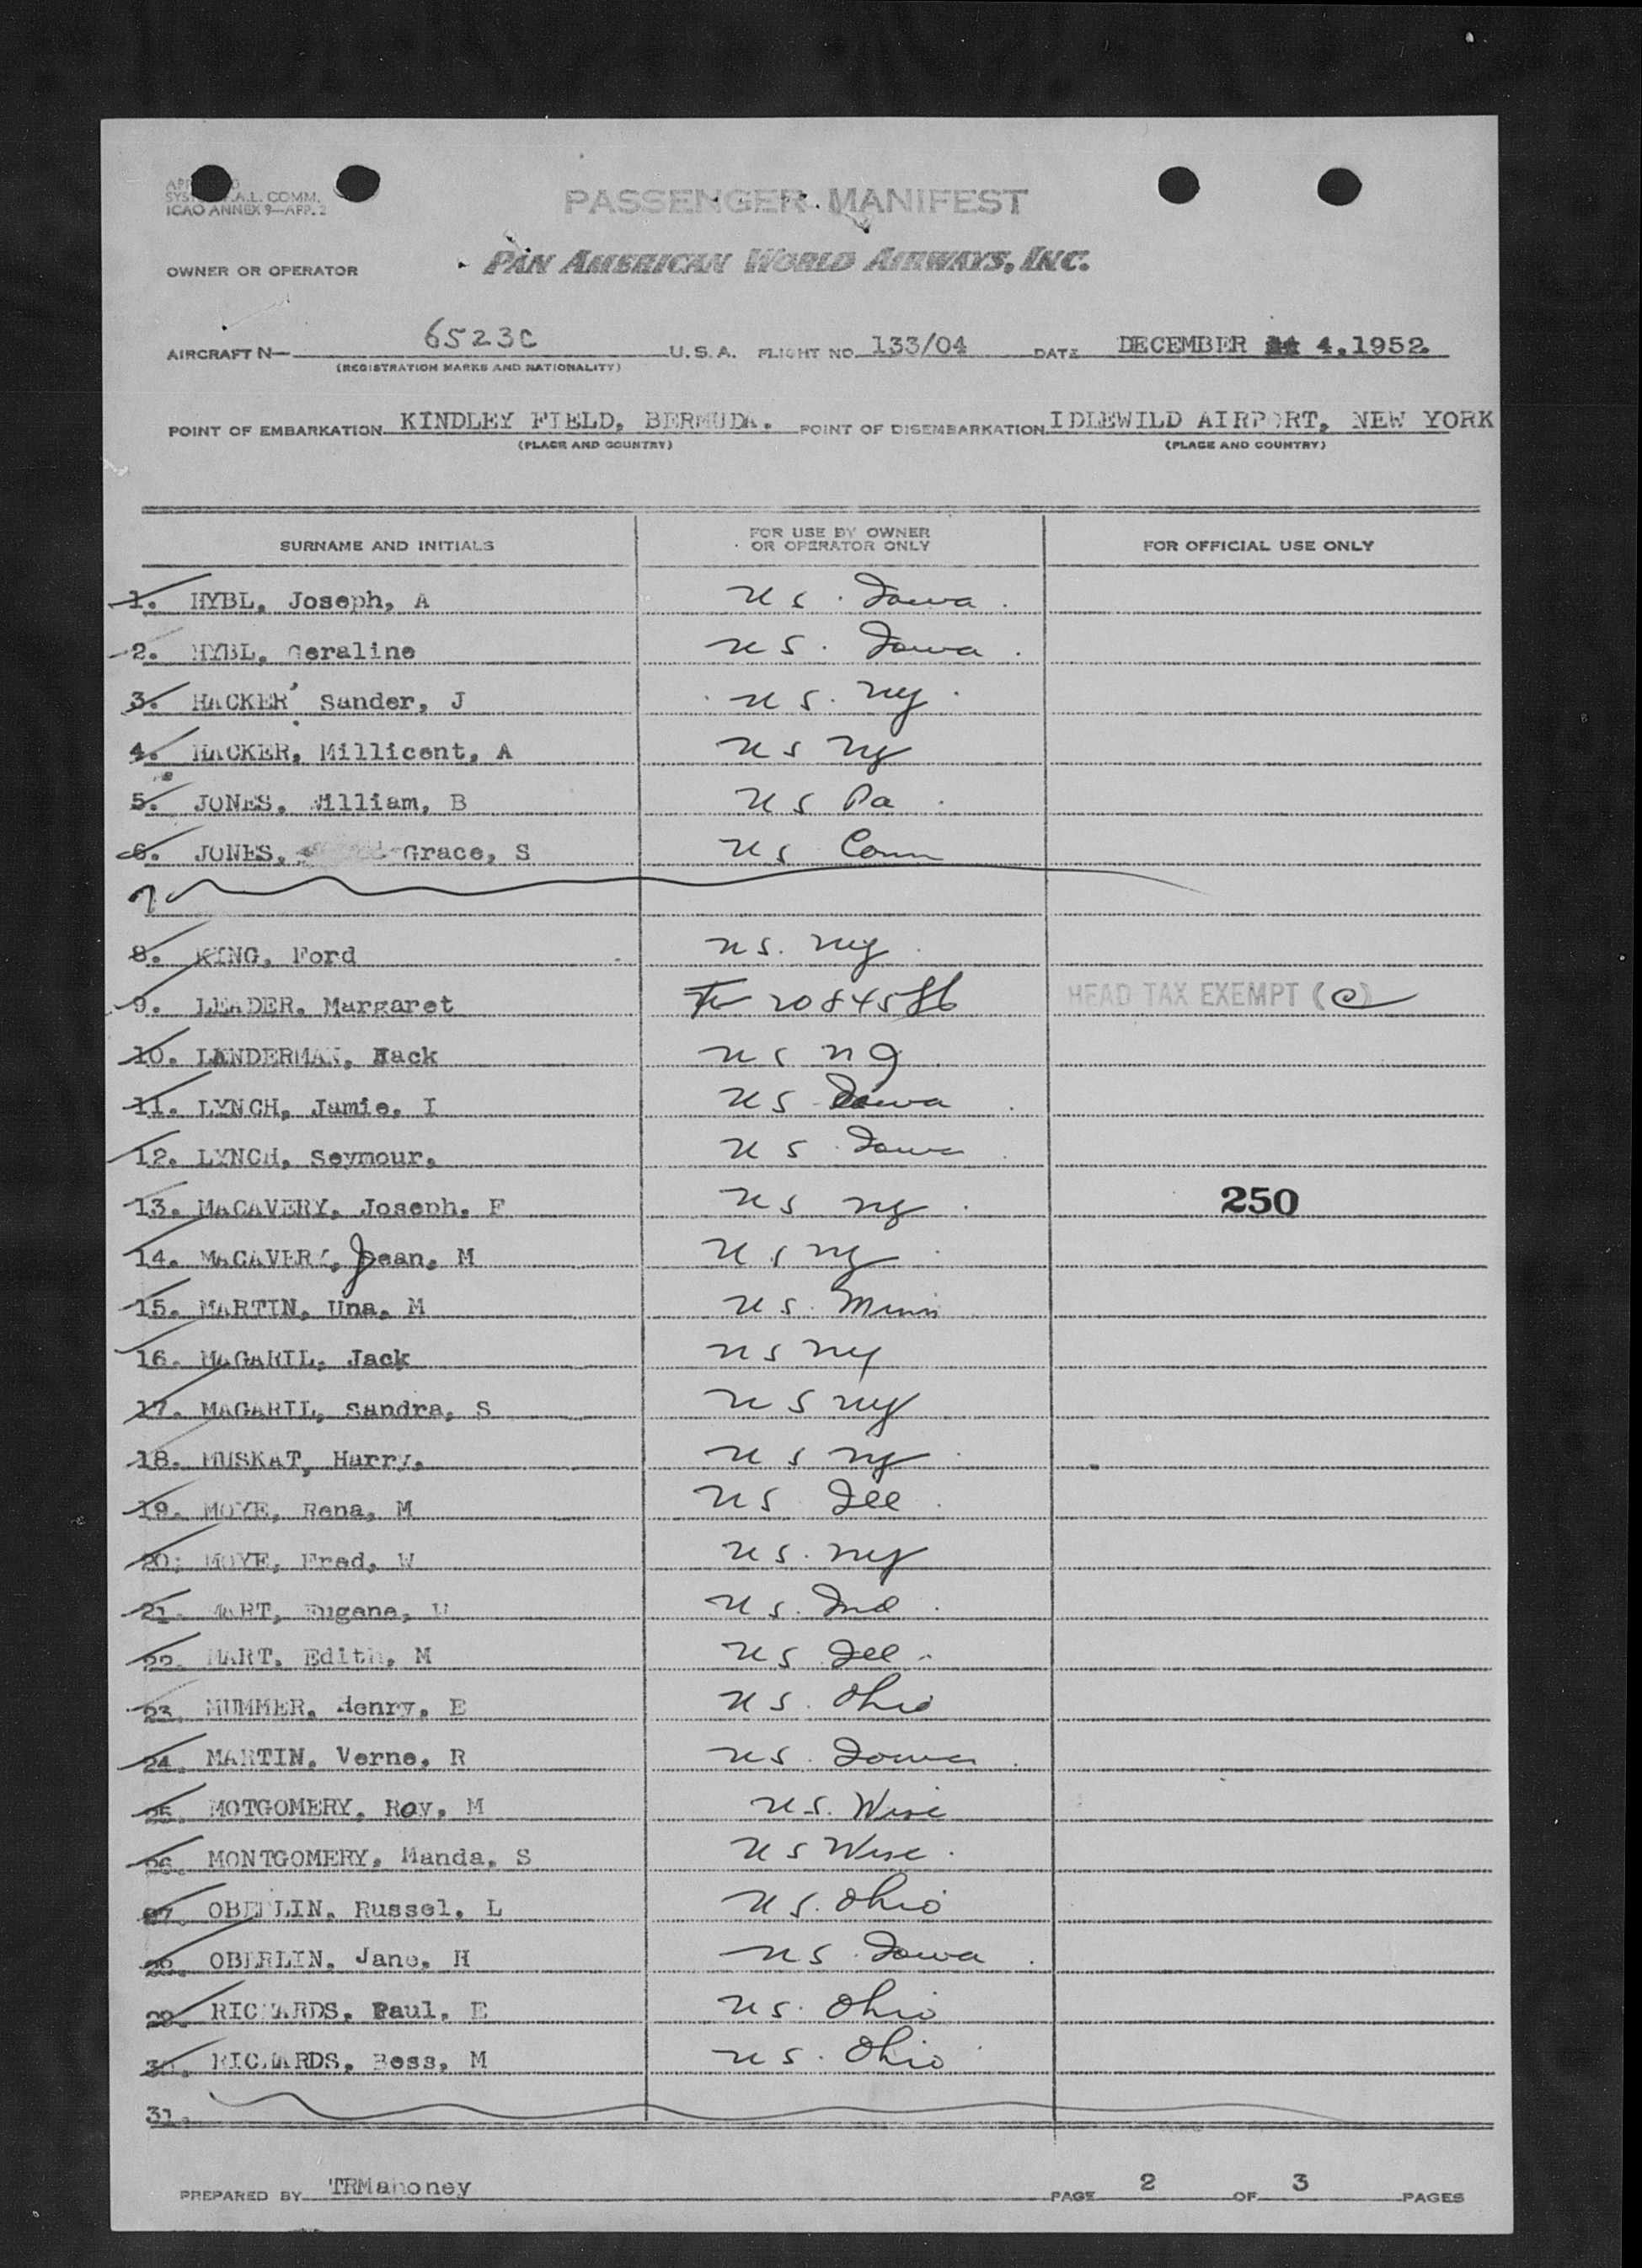 SYS A.L. COMM.
ICAO ANNEX 9—APP. 2
PASSENGER MANIFEST
OWNER OR OPERATOR PAN AMERICAN WORLD AIRWAYS, INC.
AIRCRAFT N— 6523C U.S.A. FLIGHT NO. 133/04 DATE DECEMBER 4, 1952.
(REGISTRATION MARKS AND NATIONALITY)
POINT OF EMBARKATION KINDLEY FIELD, BERMUDA. POINT OF DISEMBARKATION IDLEWILD AIRPORT, NEW YORK
(PLACE AND COUNTRY) (PLACE AND COUNTRY)
SURNAME AND INITIALS FOR USE BY OWNER OR OPERATOR ONLY FOR OFFICIAL USE ONLY
1. HYBL, Joseph, A US. Iowa.
2. HYBL, Geraline US. Iowa.
3. HACKER' Sander, J US. NY.
4. HACKER, Millicent, A US NY
5. JONES, William, B US Pa.
6. JONES, Grace, S US Conn
7
8. KING, Ford US. NY.
9. LEADER. Margaret 2084586 HEAD TAX EXEMPT (c)
10. LANDERMAN, Jack US NJ.
11. LYNCH, Jamie, I US Iowa.
12. LYNCH, Seymour. US Iowa.
13. MACAVERY, Joseph. F US NY. 250
14. MACAVERY, Jean, M US NY.
15. MARTIN, Una, M US. Minn
16. MAGARIL, Jack US NY
17. MAGARIL, Sandra, S US NY
18. MUSKAT, Harry. US NY.
19. MOYE, Rena, M US Ill.
20; MOYE, Fred, W US. NY
21. MART, Eugene, US. Ind.
22. MART, Edith, M US Ill.
23. MUMMER, Henry, E US. Ohio
24. MARTIN, Verne, R US. Iowa.
25. MOTGOMERY, Roy, M US. Wisc
26. MONTGOMERY, Manda, S US Wisc.
27. OBERLIN, Russel, L US. Ohio
28. OBERLIN, Jane, H US. Iowa.
29. RICHARDS, Paul, E US. Ohio
30. RICHARDS, Bess, M US. Ohio
31.
PREPARED BY TRMahoney PAGE 2 OF 3 PAGES